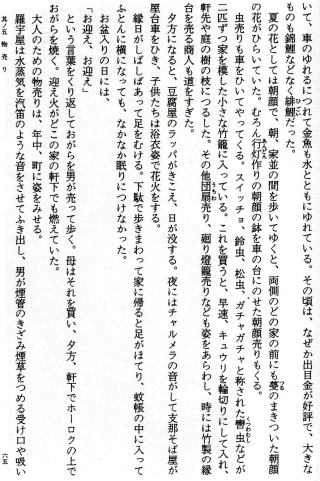 いて、車のゆれるにつれて金魚も水とともにゆれている。その頃は、なぜか出目金が好評で、大きな
ものも錦鯉などなく緋鯉だった。
夏の花としては朝顔で、朝、家並の間を歩いてゆくと、両側のどの家の前にも蔓のまきついた朝顔
の花がひらいていた。むろん行灯作りの朝顔の鉢を車の台にのせた朝顔売りもくる。
虫売りも車をひいてやってくる。スイッチョ、鈴虫、松虫、ガチャガチャと称された轡虫などが
二匹ずつ家を模した小さな竹籠に入っている。これを買うと、早速、キュウリを輪切りにして入れ、
軒先や庭の樹の枝につるした。その他団扇売り、廻り燈籠売りなども姿をあらわし、時には竹製の縁
台を売る商人も道をすぎた。
夕方になると、豆腐屋のラッパがきこえ、日が没する。夜にはチャルメラの音がして支那そば屋が
屋台車をひき、子供たちは浴衣姿で花火をする。
縁日がしばしばあって足をむける。下駄で歩きまわって家に帰ると足がほてり、蚊帳の中に入って
ふとんに横になっても、なかなか眠りにつけなかった。
お盆入りの日には、
「お迎え、お迎え」
という言葉をくり返しておがらを男が売って歩く。母はそれを買い、夕方、軒下でホーロクの上で
おがらを焼く。迎え火がどこの家の軒下でも燃えていた。
大人のための物売りは、年中、町に姿をみせる。
羅宇屋は水蒸気を汽笛のような音をさせてふき出し、男が煙管のきざみ煙草をつめる受け口や吸い
其ノ五 物売り
六五